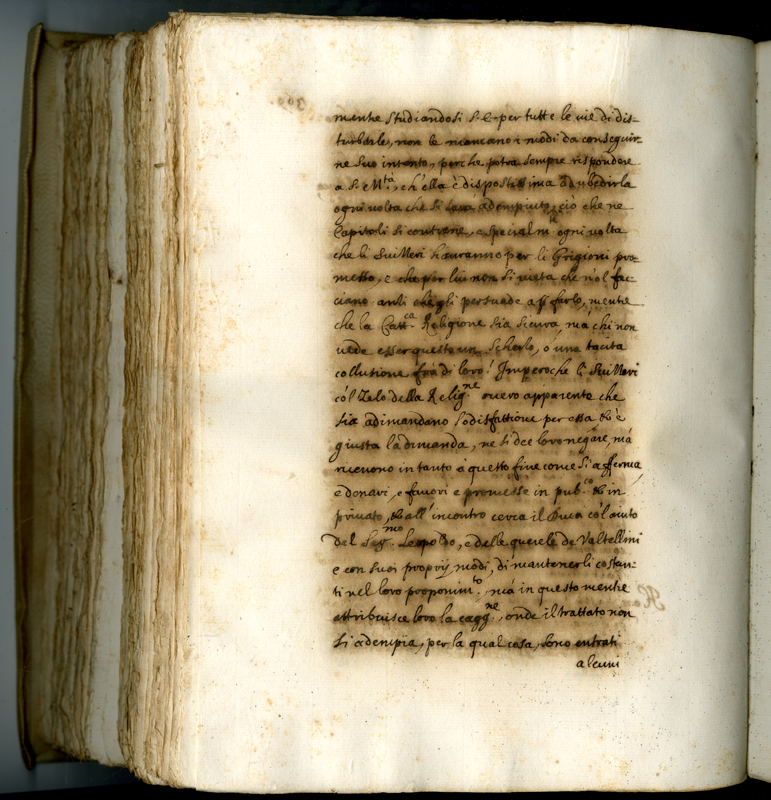 mente studiandosi S. E. per tutte le vie di dis=
turbarle, non le mancano i modi da conseguir=
ne suo intento, perche potrà sempre rispondere
a S. M.tà, ch'ella è dispostissima ad ubedirla
ogni volta che si sarà adempiuto, ciò che ne
Capitoli si contiene, e specialm.te ogni volta
che li Suizzeri hauranno per li Grigioni pro=
messo, e che per lui non si vieta che nol fac=
ciano anti ch'egli persuade a si farlo, mentre
che la Catt.ca Religione sia sicura, mà chi non
vede esser questo un scherzo, ò una tacita
collusione frà di loro? Imperoche li Suizzeri
col Zelo della Relig.ne ouero apparente che
sia adimandano sodisfattione per essa è
giusta la dimanda, ne si dee loro negare, mà
riceuono in tanto à questo fine come si afferma
e donari, e fauori e promesse in pub.co in
priuato, all'incontro cerca il Duca col aiuto
del Seg.mo Leopoldo, e delle querele de Valtellini
e con suoi proprij modi, di mantenerli costan=
ti nel loro proponim.to, mà in questo mentre
attribuisce loro la cagg.ne, onde il trattato non
si adempia, per la qual cosa, sono entrati
alcuni